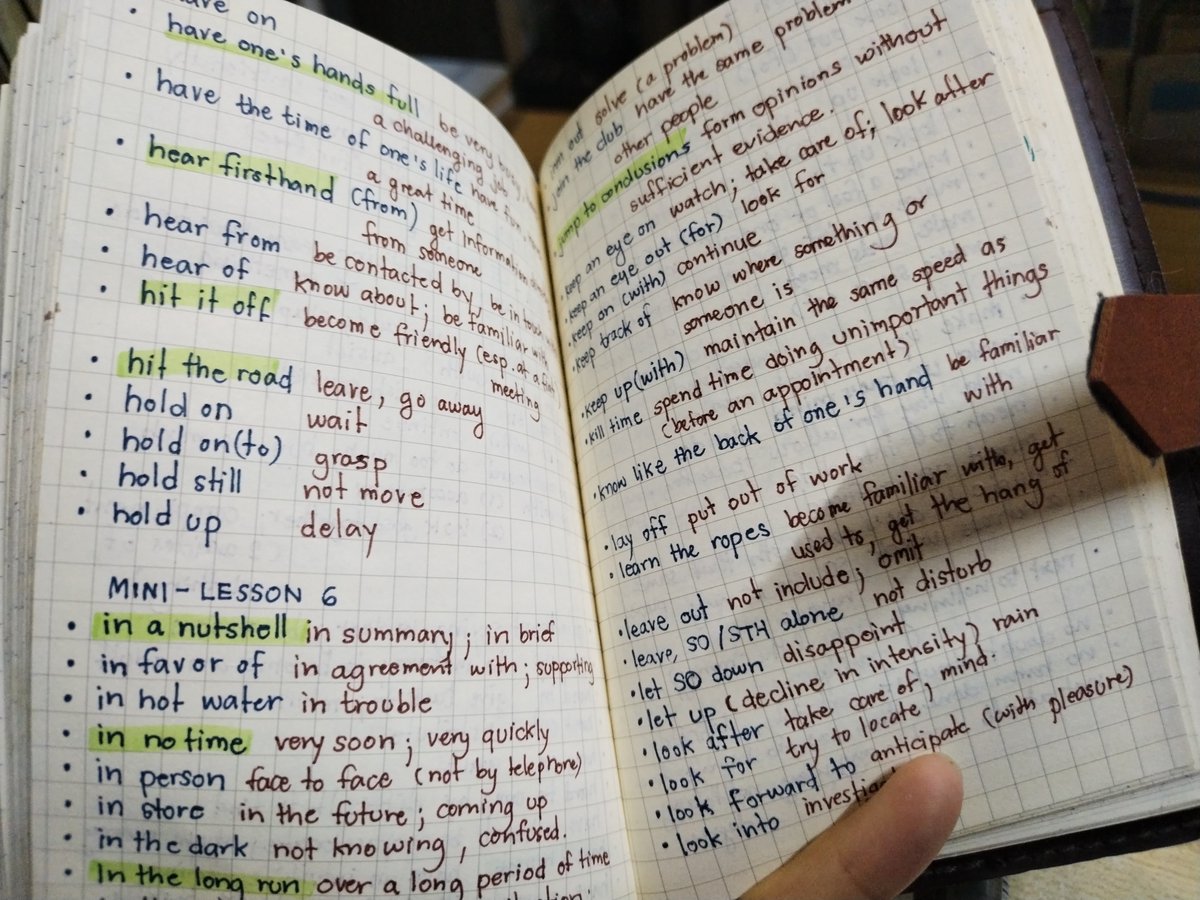 have on
• have one's hands full be very busy
a challenging job
• have the time of one's life have fun
a great time
• hear firsthand (from) get information
from someone
• hear from be contacted by, be in touch
• hear of know about; be familiar with
• hit it off become friendly (esp. at a first
meeting
• hit the road leave, go away
• hold on wait
• hold on(to) grasp
• hold still not move
• hold up delay
MINI-LESSON 6
• in a nutshell in summary; in brief
• in favor of in agreement with; supporting
• in hot water in trouble
• in no time very soon; very quickly
• in person face to face (not by telephone)
• in store in the future; coming up
• in the dark not knowing, confused.
• In the long run over a long period of time
out solve (a problem)
• join the club have the same problem
other people
• jump to conclusions form opinions without
sufficient evidence.
• keep an eye on watch; take care of; look after
• keep an eye out (for) look for
• keep on (with) continue
• keep track of know where something or
someone is
• keep up(with) maintain the same speed as
• kill time spend time doing unimportant things
(before an appointment)
• know like the back of one's hand be familiar
with
• lay off put out of work
• learn the ropes become familiar with, get
used to, get the hang of
• leave out not include; omit
• leave, SO/STH alone not distorb
• let SO down disappoint
• let up (decline in intensity) rain
• look after take care of, mind.
• look for try to locate
• look forward to anticipate (with pleasure)
• look into